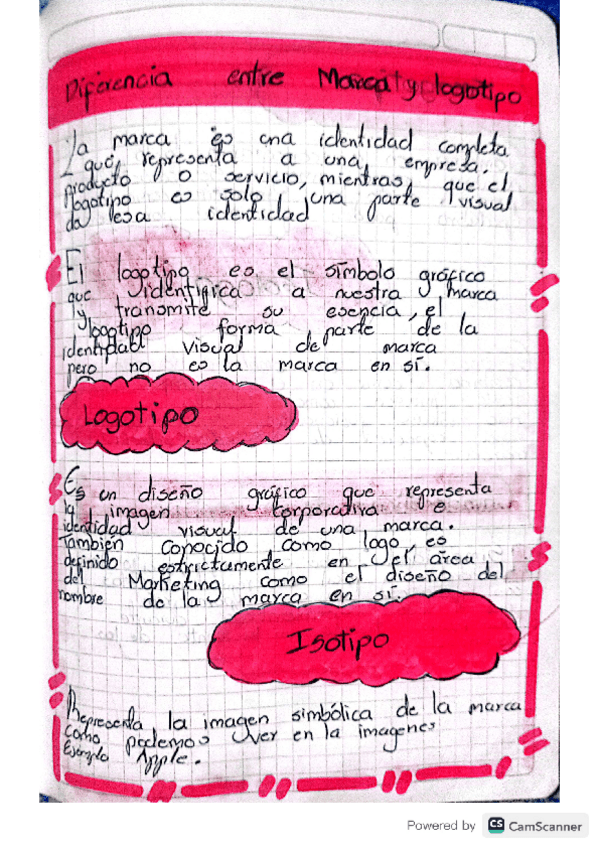 Diferencia entre Marca y logotipo
La marca es una identidad completa
que representa a una empresa,
producto o servicio, mientras que el
logotipo es solo una parte visual
de esa identidad
El logotipo es el símbolo gráfico
que identifica a nuestra marca
y transmite su esencia, el
logotipo forma parte de la
identidad visual de marca
pero no es la marca en sí.
Logotipo
Es un diseño gráfico que representa
la imagen corporativa e
identidad visual de una marca.
También conocido como logo, es
definido estrictamente en el área
del Marketing como el diseño del
nombre de la marca en sí.
Isotipo
Representa la imagen simbólica de la marca
como podemos ver en la imagenes
Ejemplo Apple.
Powered by CS CamScanner